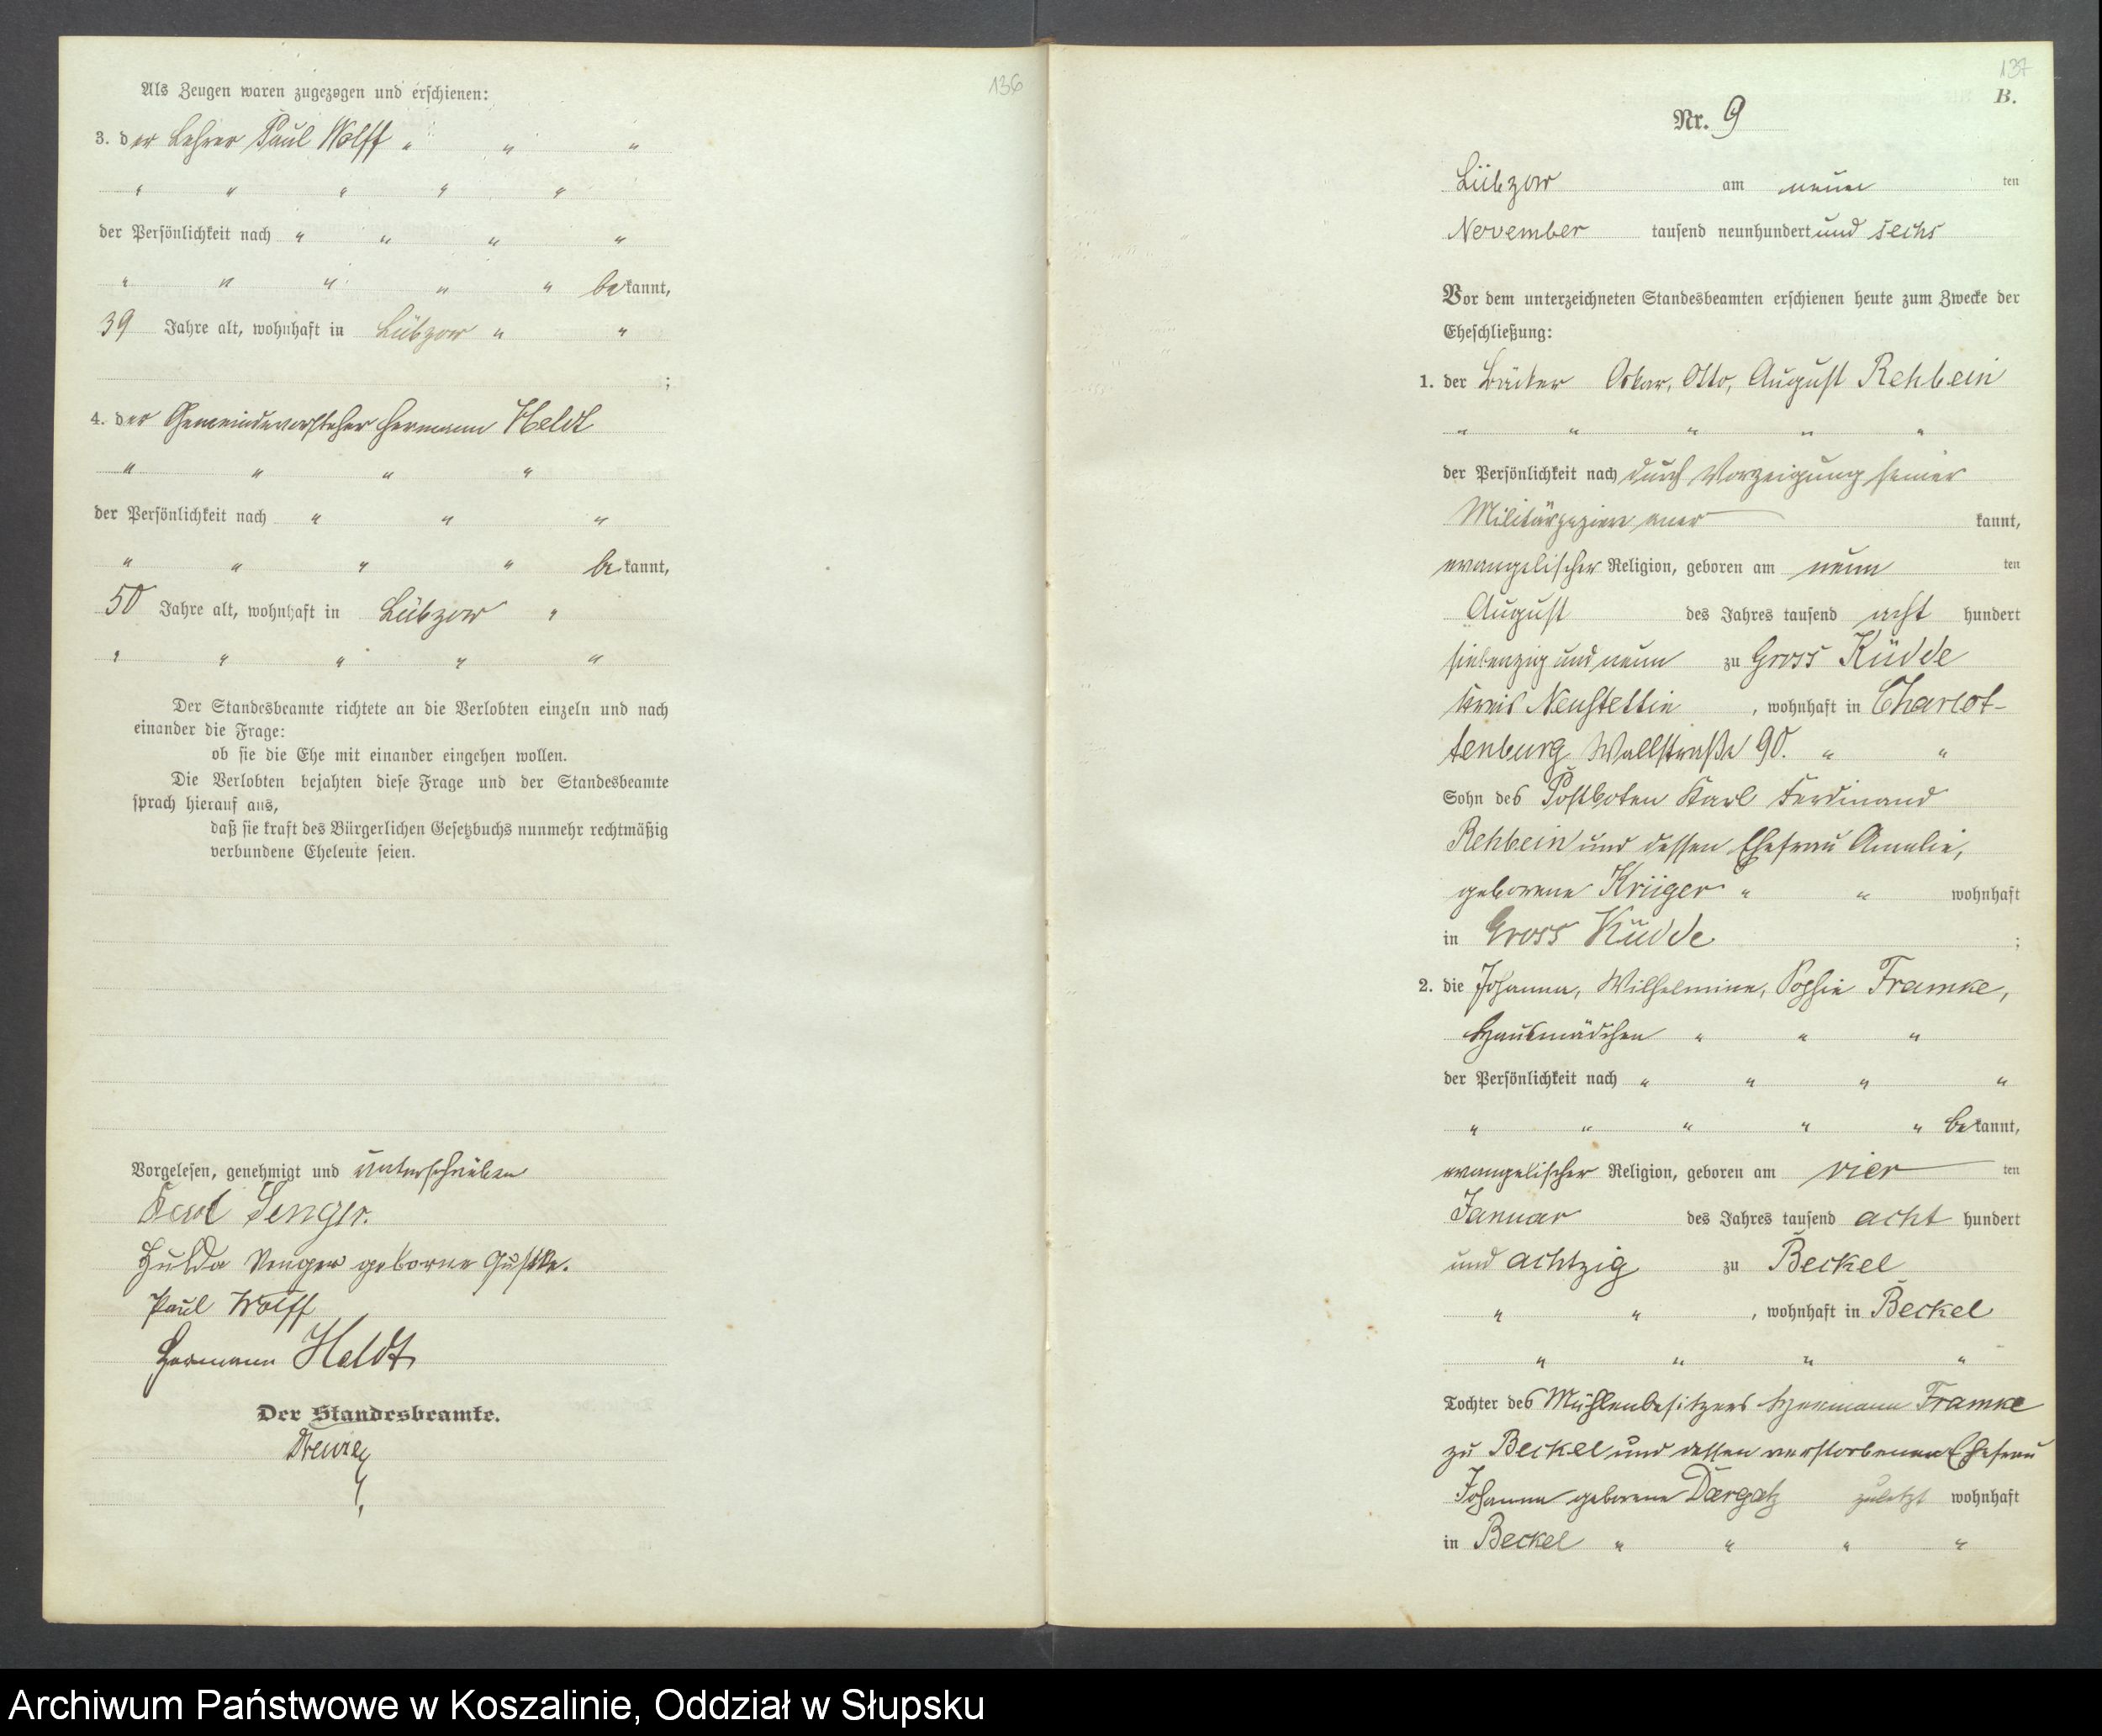 136
Als Zeugen waren zugezogen und erschienen:
3. der Lehrer Paul Wolff " " "
" " " " "
der Persönlichkeit nach " " " "
" " " " " bekannt,
39 Jahre alt, wohnhaft in Lübzow " "
;
4. der Gemeindevorsteher Hermann Heldt
" " " "
der Persönlichkeit nach " " "
" " " " bekannt,
50 Jahre alt, wohnhaft in Lübzow "
" " " " "
Der Standesbeamte richtete an die Verlobten einzeln und nach
einander die Frage:
ob sie die Ehe mit einander eingehen wollen.
Die Verlobten bejahten diese Frage und der Standesbeamte
sprach hierauf aus,
daß sie kraft des Bürgerlichen Gesetzbuchs nunmehr rechtmäßig
verbundene Eheleute seien.
Vorgelesen, genehmigt und unterschrieben
Karl Senger.
Hulda Senger geborne Gustke.
Paul Wolff
Hermann Heldt
Der Standesbeamte.
137
B.
Nr. 9
Lübzow am neun ten
November tausend neunhundert und sechs
Vor dem unterzeichneten Standesbeamten erschienen heute zum Zwecke der
Eheschließung:
1. der Bäcker Oskar, Otto, August Rehbein
" " " " "
der Persönlichkeit nach durch Vorzeigung seiner
Militärpapiere aner kannt,
evangelischer Religion, geboren am neun ten
August des Jahres tausend acht hundert
siebenzig und neun zu Gross Küdde
Kreis Neustettin , wohnhaft in Charlot-
tenburg Wallstraße 90. " "
Sohn des Postboten Karl Ferdinand
Rehbein und dessen Ehefrau Amalie,
geborene Krüger " " wohnhaft
in Gross Küdde ;
2. die Johanna, Wilhelmine, Sophie Framke,
Hausmädchen " " "
der Persönlichkeit nach " " " "
" " " " " bekannt,
evangelischer Religion, geboren am vier ten
Januar des Jahres tausend acht hundert
und achtzig zu Beckel
" " , wohnhaft in Beckel
" " " "
Tochter des Mühlenbesitzers Hermann Framke
zu Beckel und dessen verstorbenen Ehefrau
Johanna geborene Dargatz zuletzt wohnhaft
in Beckel " " " "
Archiwum Państwowe w Koszalinie, Oddział w Słupsku